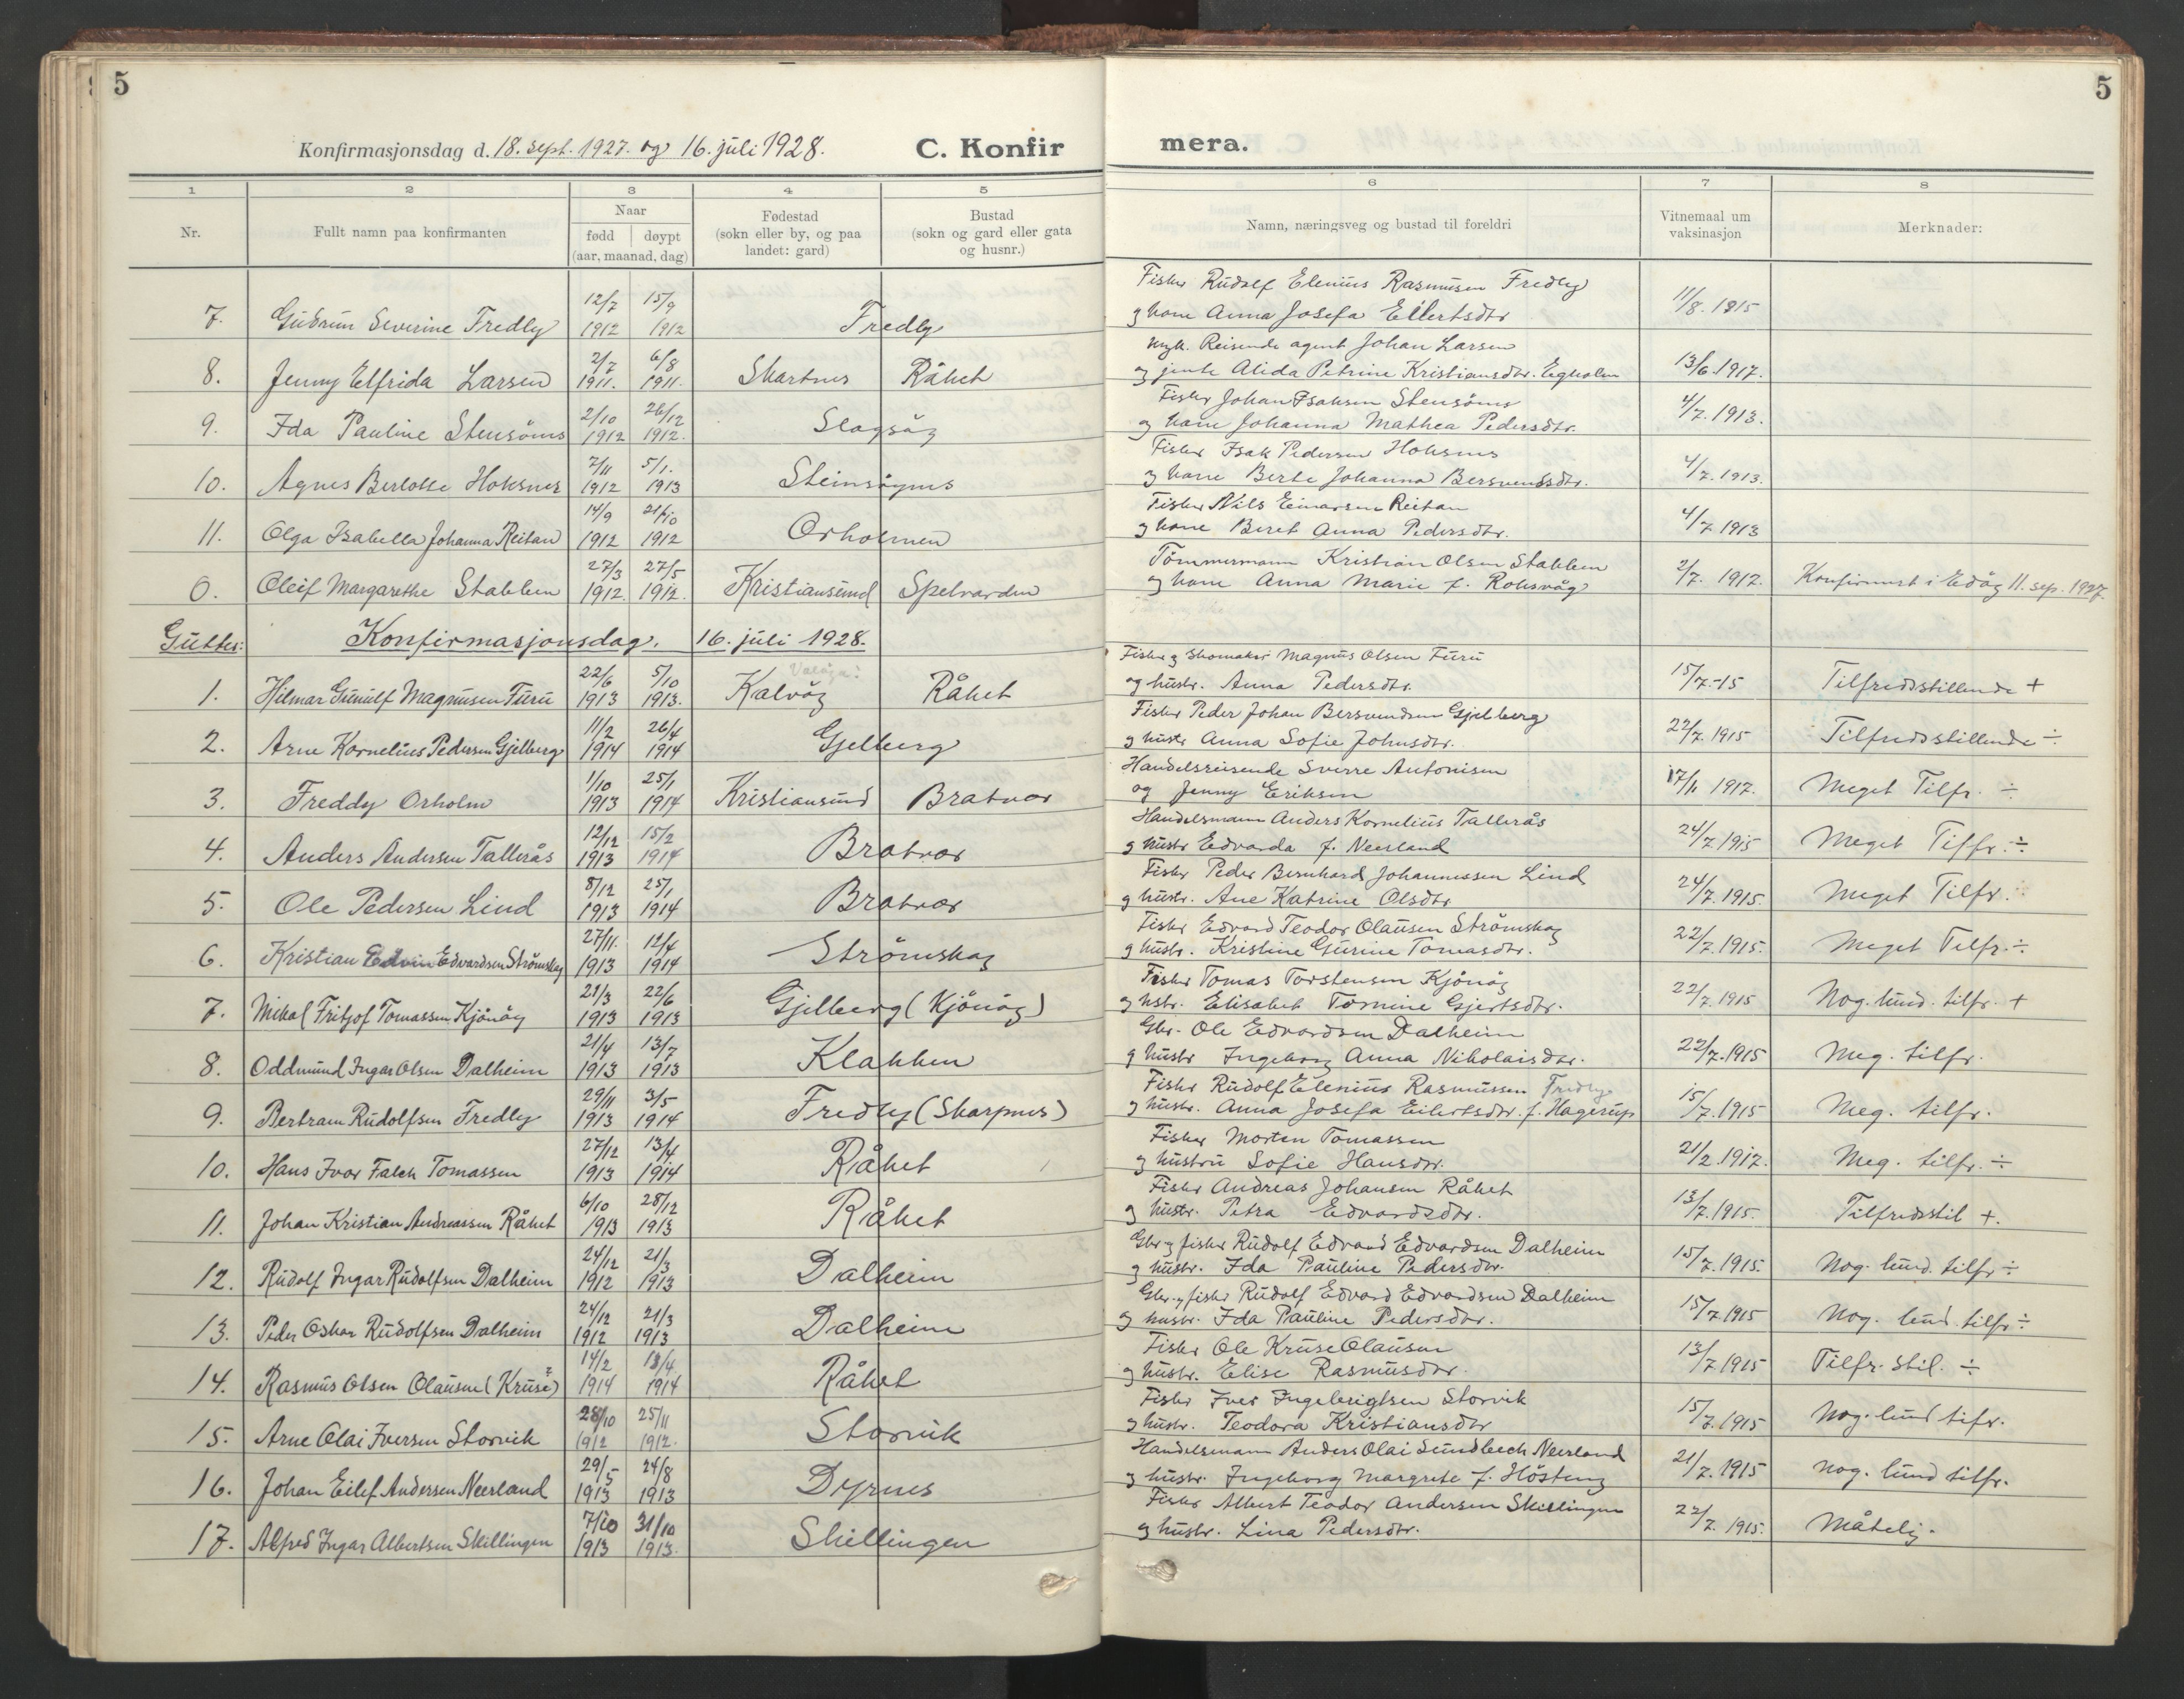 5
5
Konfirmasjonsdag d. 18. sept. 1927. og 16. juli 1928.
C. Konfirmera.
1 2 3 4 5 6 7 8
Nr.
Fullt namn paa konfirmanten
Naar
fødd døypt
(aar, maanad, dag)
Fødestad
(sokn eller by, og paa
landet: gard)
Bustad
(sokn og gard eller gata
og husnr.)
Namn, næringsveg og bustad til foreldri
Vitnemaal um
vaksinasjon
Merknader:
12/7 15/9 Fisker Rudolf Elenius Rasmusen Fredly
7. Gudrun Severine Fredly 1912 1912 Fredly og kone Anna Josefa Eilertsdtr 11/8. 1915
2/7 6/8 ungk. Reisende agent Johan Larsen
8. Jenny Elfrida Larsen 1911. 1911. Skarsnes Råket og jente Alida Petrine Kristiansdtr. Egholm 13/6. 1917.
2/10 26/12 Fisker Johan Isaksen Stensönes
9. Ida Pauline Stensönes 1912 1912. Slagsåg og kone Johanna Mathea Pedersdtr. 4/7. 1913.
7/11 5/1. Fisker Isak Pedersen Hoksnes
10. Agnes Berlotte Hoksnes 1912 1913 og kone Berte Johanna Bersvendsdtr. 4/7. 1913.
14/9 21/10 Fisker Nils Einarsen Reitan
11. Olga Isabella Johanna Reitan 1912 1912 Orholmen og kone Beret Anna Pedersdtr. 4/7. 1913
27/3 27/5 Tömmermann Kristian Olsen Stabben
0. Oleif Margarethe Stabben 1912. 1912. Kristiansund Spelvarden og kone Anna Marie f. Roksvåg 2/7. 1912. Konfirmert i Edöy 11. sep. 1927.
Gutter: Konfirmasjonsdag. 16. juli 1928.
22/6 5/10 Fisker og Skomaker Magnus Olsen Furu
1. Hilmar Gunulf Magnusen Furu 1913 1913. Kalvåg Råket og hustr. Anna Pedersdtr. 15/7.-15 Tilfredsstillende +
11/2 26/4 Fisker Peder Johan Bersvendsen Gjelberg
2. Arne Kornelius Pedersen Gjelberg 1914 1914 Gjelberg og hustr Anna Sofie Johnsdtr. 22/7. 1915 Tilfredsstillende ÷
1/10 25/1 Handelsreisende Sverre Antonisen
3. Freddy Orholm 1913 1914 Kristiansund Bratvær og Jenny Eriksen 17/11 1917. Meget Tilfr. ÷
12/12 15/2 Handelsmann Anders Kornelius Tallerås
4. Anders Andersen Tallerås 1913 1914 Bratvær og hustr Edvarda f. Neerland 24/7 1915 Meget Tilfr. ÷
8/12 25/1 Fisker Peder Bernhard Johannessen Lind
5. Ole Pedersen Lind 1913 1914 Bratvær og hustr. Ane Katrine Olsdtr 24/7. 1915. Meget Tilfr. ÷
27/11. 12/4 Fisker Edvard Teodor Olausen Strömskag
6. Kristian Edvin Edvardsen Strömskag 1913 1914 Strömskag og hustr. Kristine Gurine Tomasdtr. 22/7. 1915. Meget Tilfr. ÷
21/3 22/6 Fisker Tomas Torstensen Kjönöy
7. Mikal Fritjof Tomassen Kjönöy 1913 1913 Gjelberg (Kjönöy) og hstr. Elisabet Tomine Gjertsdtr. 22/7. 1915 Nog. lund. tilfr. +
21/4 13/7 Gbr. Ole Edvardsen Dalheim
8. Oddmund Ingar Olsen Dalheim 1913 1913 Klakken og hustr Ingeborg Anna Nikolaisdtr. 22/7. 1915 Meg. tilfr.
29/11 3/5 Fisker Rudolf Elenius Rasmussen Fredly
9. Bertram Rudolfsen Fredly 1913 1914 Fredly (Skarpnes) og hustr. Anna Josefa Eilertsdtr. f. Hagerup 15/7. 1915 Meg. tilfr.
27/12 13/4 Fisker Morten Tomassen
10. Hans Ivar Falck Tomassen 1913 1914 Råket og hustru Sofie Hansdtr. 21/2. 1917. Meg. tilfr. ÷
6/10 28/12 Fisker Andreas Johansen Råket
11. Johan Kristian Andreassen Råket 1913 1913 Råket og hustr. Petra Edvardsdtr. 13/7. 1915. Tilfredsstil +.
24/12 21/3 Gbr og fisker Rudolf Edvard Edvardsen Dalheim
12. Rudolf Ingar Rudolfsen Dalheim 1912 1913 Dalheim og hustr. Ida Pauline Pedersdtr. 15/7. 1915. Nog. lund. tilfr ÷
24/12 21/3 Gbr. og fisker Rudolf Edvard Edvardsen Dalheim
13. Peder Oskar Rudolfsen Dalheim 1912 1913 Dalheim og hustr. Ida Pauline Pedersdtr. 15/7 1915 Nog. lund. tilfr ÷
14/2 13/4 Fisker Ole Kruse Olausen
14. Rasmus Olsen Olausen (Kruse?) 1914 1914 Råket og hustr. Elise Rasmusdtr. 13/7. 1915 Tilfr. stil. ÷
28/10 25/11 Fisker Iver Ingebrigtsen Storvik
15. Arne Olai Iversen Storvik 1912 1912. Storvik og hustr. Teodora Kristiansdtr 15/7. 1915 Nog. lund tifr.
29/5 24/8 Handelsmann Anders Olai Sundbech Neerland
16. Johan Eilef Andersen Neerland 1913 1913 Dyrnes og hustr. Ingeborg Margrete f. Hösteng 21/7. 1915 Nog. lund tilfr.
7/10 31/10 Fisker Albert Teodor Andersen Skillingen
17. Alfred Ingar Albertsen Skillingen 1913 1913. Skillingen og hustr. Lina Pedersdtr. 22/7. 1915. Måtelig.